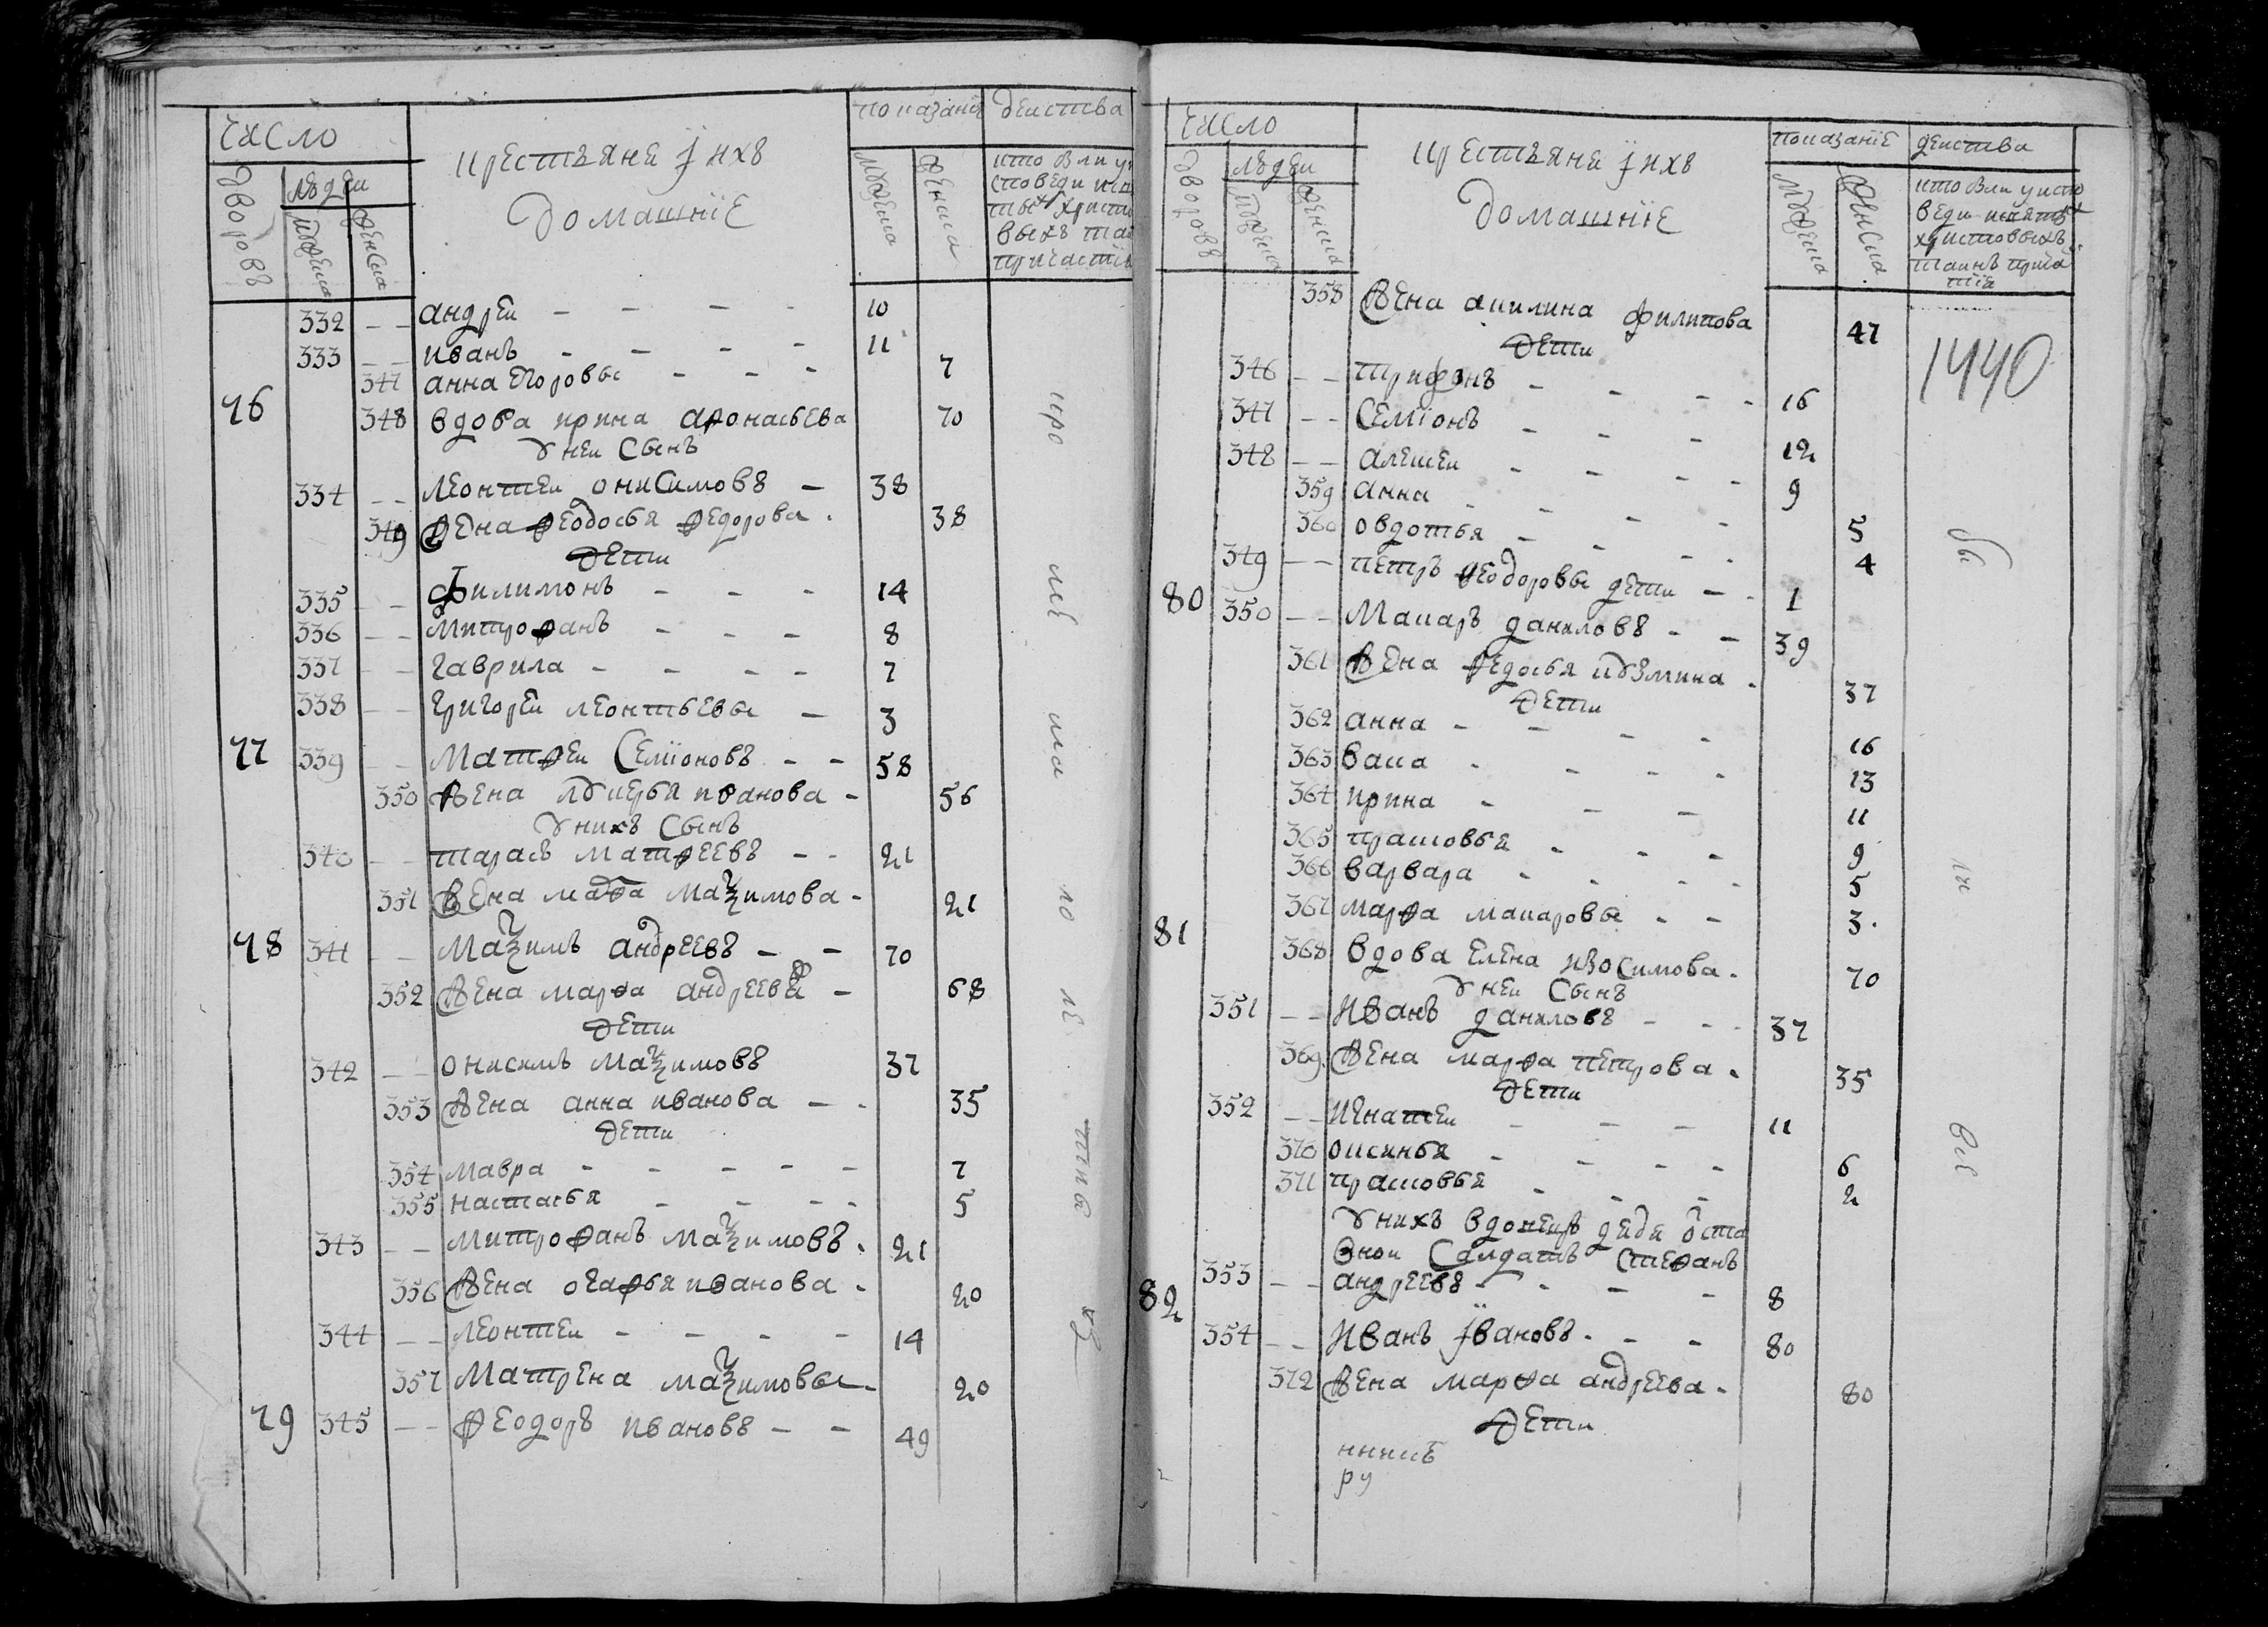 число
крестьяне и ихъ
домашние
показание
действа
дворовъ
людеи
мужеска
женска
мужеска
женска
332 андреи 10
333 иванъ 11
347 анна егоровы 7
76 348 вдова ирина афонасьева 70
у неи сынъ
334 леонтеи онисимовъ 38
349 жена феодосья федорова 38
дети
335 филимонъ 14
336 митрофанъ 8
337 гаврила 7
338 григореи леонтьевы 3
77 339 матфеи семионовъ 58
350 жена лукерья иванова 56
у нихъ сынъ
340 тарасъ матфеевъ 21
351 жена мавра маѯимова 21
78 341 маѯимъ андреевъ 70
352 жена марфа андреева 68
дети
342 онисимъ маѯимовъ 37
353 жена анна иванова 35
дети
354 мавра 7
355 настасья 5
343 митрофанъ маѯимовъ 21
356 жена огафья иванова 20
344 леонтеи 14
357 матрена маѯимовы 20
79 345 феодоръ ивановъ 49
число
крестьяне и ихъ
домашние
показание
действа
дворовъ
людеи
мужеска
женска
мужеска
женска
358 жена акилина филипова 47
дети
1440
346 трифонъ 16
347 семионъ 12
348 алексеи 9
359 анна 5
360 овдотья 4
349 петръ феодоровы дети 1
80 350 макаръ даниловъ 39
361 жена федосья кузмина 37
дети
362 анна 16
363 васа 13
364 ирина 11
365 прасковья 9
366 варвара 5
367 марфа макаровы 3
81 368 вдова елена изосимова 70
у неи сынъ
351 иванъ даниловъ 37
369 жена марфа петрова 35
дети
352 игнатеи 11
370 оксинья 6
371 прасковья 2
у нихъ
салдатъ стефанъ
353 андреевъ 8
82 354 иванъ ивановъ 80
372 жена марфа андреева 80
дети